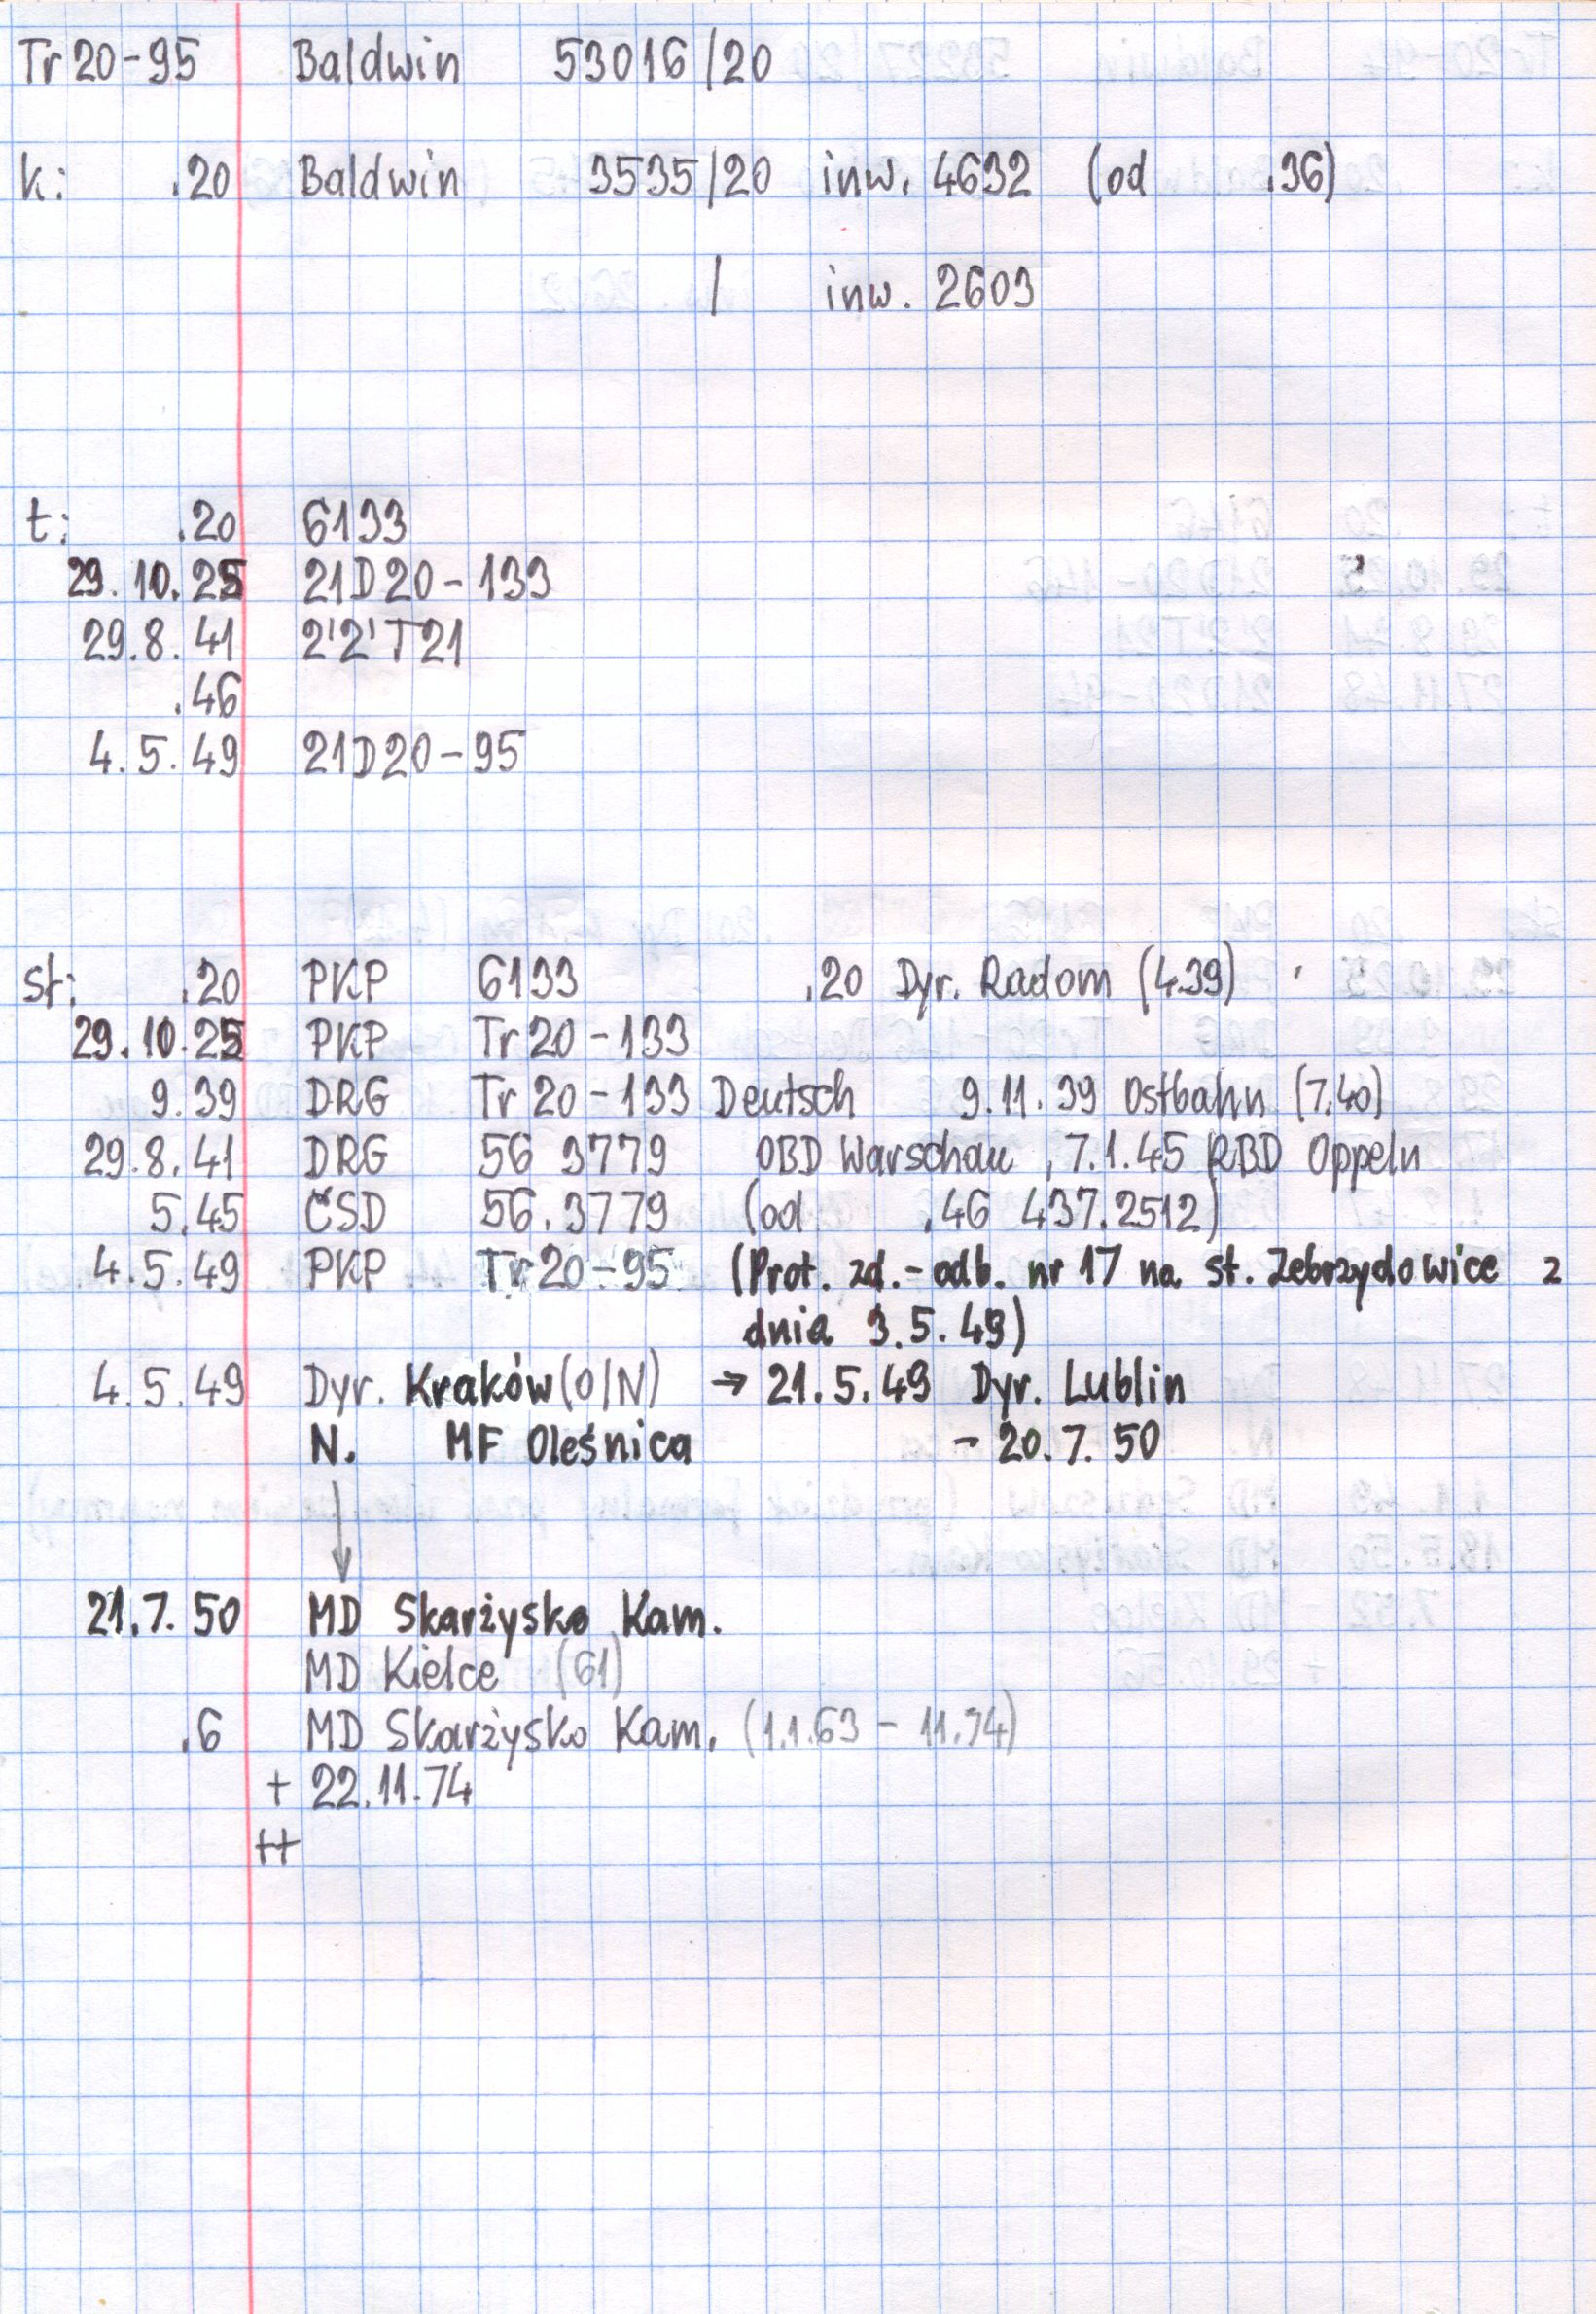 Tr20-95 Baldwin 53016/20
k: .20 Baldwin 3535/20 inw. 4632 (od .36)
/ inw. 2603
t: .20 6133
29.10.25 21D20-133
29.8.41 2'2'T21
.46
4.5.49 21D20-95
st: .20 PKP 6133 .20 Dyr. Radom (4.39)
29.10.25 PKP Tr20-133
9.39 DRG Tr20-133 Deutsch 9.11.39 Ostbahn (7.40)
29.8.41 DRG 56 3779 OBD Warschau, 7.1.45 RBD Oppeln
5.45 ČSD 56.3779 (od .46 437.2512)
4.5.49 PKP Tr20-95 (Prot. zd.-odb. nr 17 na st. Zebrzydowice z
dnia 3.5.49)
4.5.49 Dyr. Kraków (O/N) → 21.5.49 Dyr. Lublin
N. MF Oleśnica - 20.7.50
21.7.50 MD Skarżysko Kam.
MD Kielce (61)
.6 MD Skarżysko Kam. (1.1.63 - 11.74)
+ 22.11.74
++